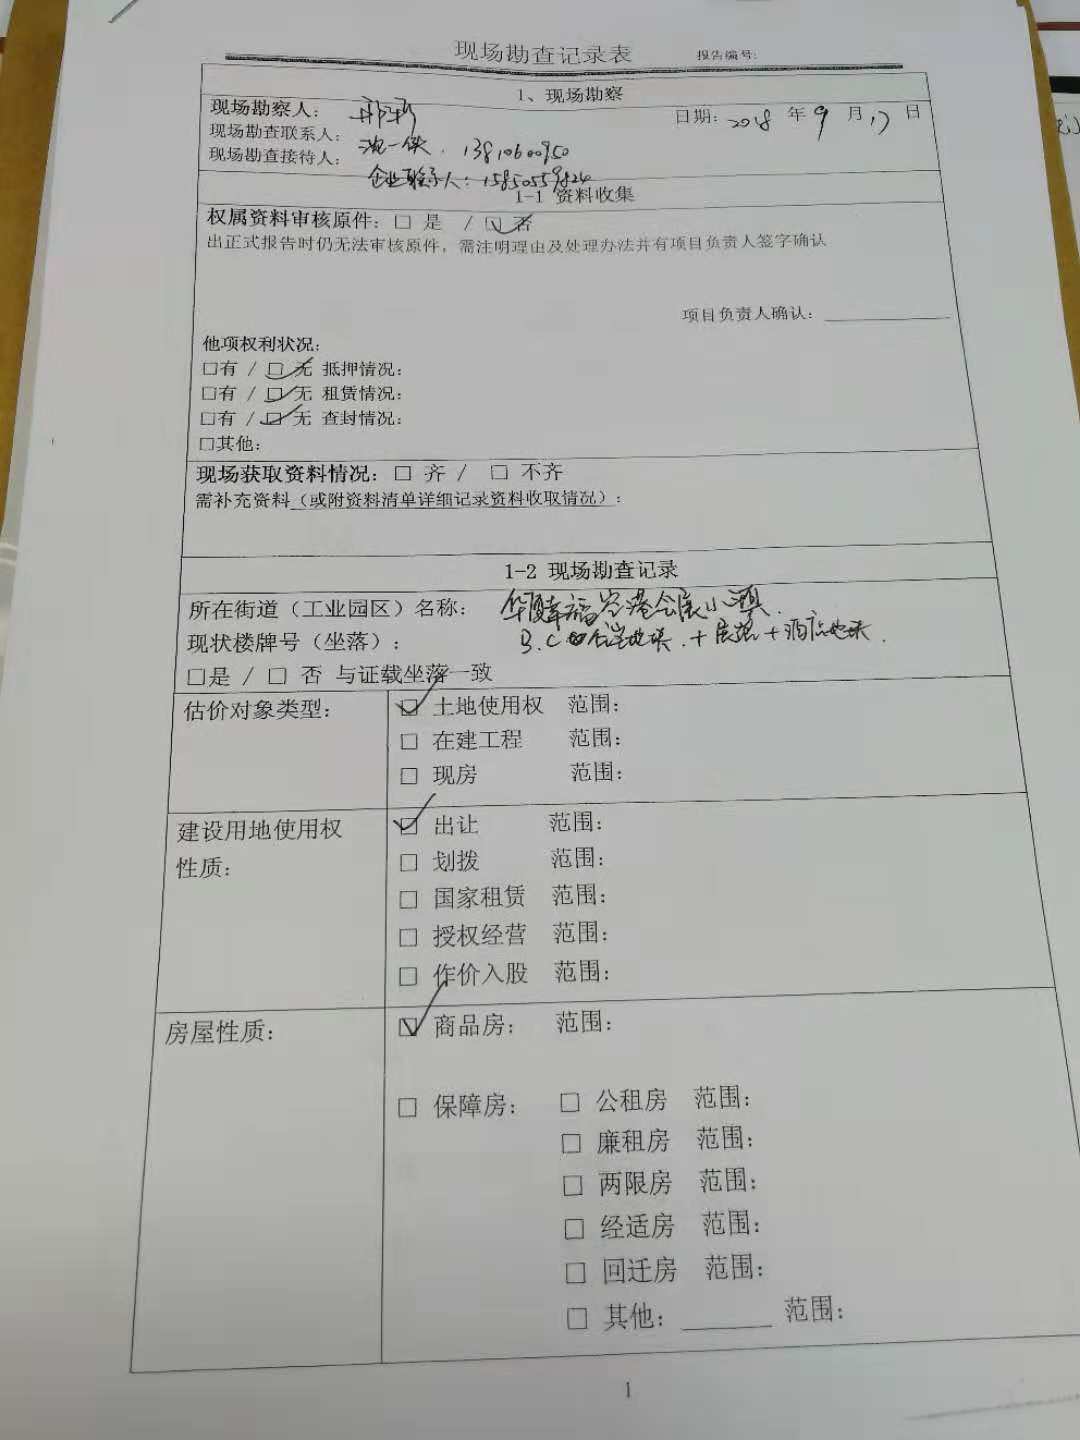 现场勘查记录表 报告编号:
1、现场勘察
现场勘察人:
日期: 2018 年 9 月 17 日
现场勘查联系人: 沈一侠. 13810600950
现场勘查接待人:
企业联系人: 15850559824
1-1 资料收集
权属资料审核原件: □ 是 / ☑ 否
出正式报告时仍无法审核原件, 需注明理由及处理办法并有项目负责人签字确认
项目负责人确认: ________
他项权利状况:
□有 / ☑ 无 抵押情况:
□有 / ☑ 无 租赁情况:
□有 / ☑ 无 查封情况:
□其他:
现场获取资料情况: □ 齐 / □ 不齐
需补充资料(或附资料清单详细记录资料收取情况):
1-2 现场勘查记录
所在街道(工业园区)名称: 华夏幸福空港会展小镇.
现状楼牌号(坐落): B.C 地块.+展览+酒店地块.
□是 / □ 否 与证载坐落一致
估价对象类型:
☑ 土地使用权 范围:
□ 在建工程 范围:
□ 现房 范围:
建设用地使用权
性质:
☑ 出让 范围:
□ 划拨 范围:
□ 国家租赁 范围:
□ 授权经营 范围:
□ 作价入股 范围:
房屋性质:
☑ 商品房: 范围:
□ 保障房: □ 公租房 范围:
□ 廉租房 范围:
□ 两限房 范围:
□ 经适房 范围:
□ 回迁房 范围:
□ 其他: ______ 范围:
1